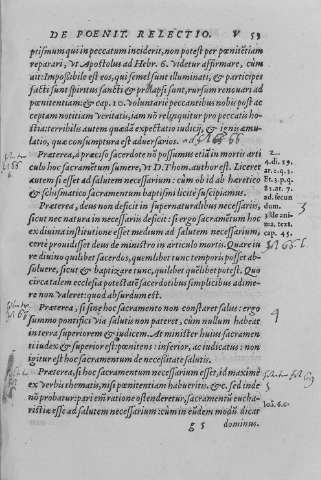 DE POENIT. RELECTIO. V 59
ptismum qui in peccatum inciderit, non potest per pœnitẽtiam
reparari, Vt Apostolus ad Hebr. 6. videtur affirmare, cùm
ait: Impoßibile est eos, qui semel sunt illuminati, & participes
facti sunt spiritus sancti & prolapsi sunt, rursum renouari ad
pœnitentiam: & cap. 10. Voluntariè peccantibus nobis post ac
ceptam notitiam Veritatis, iam nõ relinquitur pro peccatis ho
stia: terribilis autem quædã expectatio iudicij, & ignis æmu
latio, quæ consumptura est aduersarios.
Præterea, à præciso sacerdote nõ possumus etiã in mortis arti
culo hoc sacramẽtum sumere, Vt D. Thom. author est. Liceret
autem si esset ad salutem necessarium: cùm ob id ab hæretico
& schismatico sacramentum baptismi licitè suscipiamus.
Præterea, deus non deficit in supernaturalibus necessarijs,
sicut nec natura in necessarijs deficit: si ergo sacramẽtum hoc
ex diuina institutione esset medium ad salutem necessarium,
certè prouidisset deus de ministro in articulo mortis. Quare iu
re diuino quilibet sacerdos, quemlibet tunc temporis posset ab-
soluere, sicut & baptizare tunc, quilibet quẽlibet potest. Quo
circa talem ecclesia potestatẽ sacerdotibus simplicibus adime-
re non Valeret: quod absurdum est.
Præterea, si sine hoc sacramento non constaret salus: ergo
summo pontifici Via salutis non pateret, cum nullum habeat
in terra supriorem & iudicem. At minister huius sacramen
ti iudex & superior est: pœnitens inferior, ac iudicatus: non
igitur est hoc sacramentum de necesitate salutis.
Præterea, si hoc sacramentum necessarium esset, id maximè
ex verbis thematis, nisi pœnitentiam habueritis. &c. sed inde
nõ probatur: pari em̃ ratione ostenderetur, sacramẽtũ eucha-
ristiæ esse ad salutem necessarium: cùm in eũdem modũ dicat
g 5 dominus.
2.
4. di. 19.
ar. 2. q. 1.
Et. 3. p. q.
ad. secun
dum.
3
3 de ani-
ma, text.
cap. 45.
4
5
Ioã. 6. c.